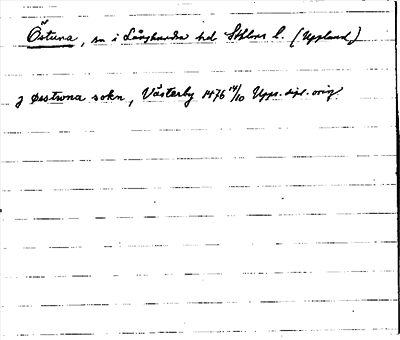 Östuna, sn i Långhundra hd Sthlms l. (Uppland)
j Østwna sokn, Västerby 1476 14/10 Upps. dipl. orig.